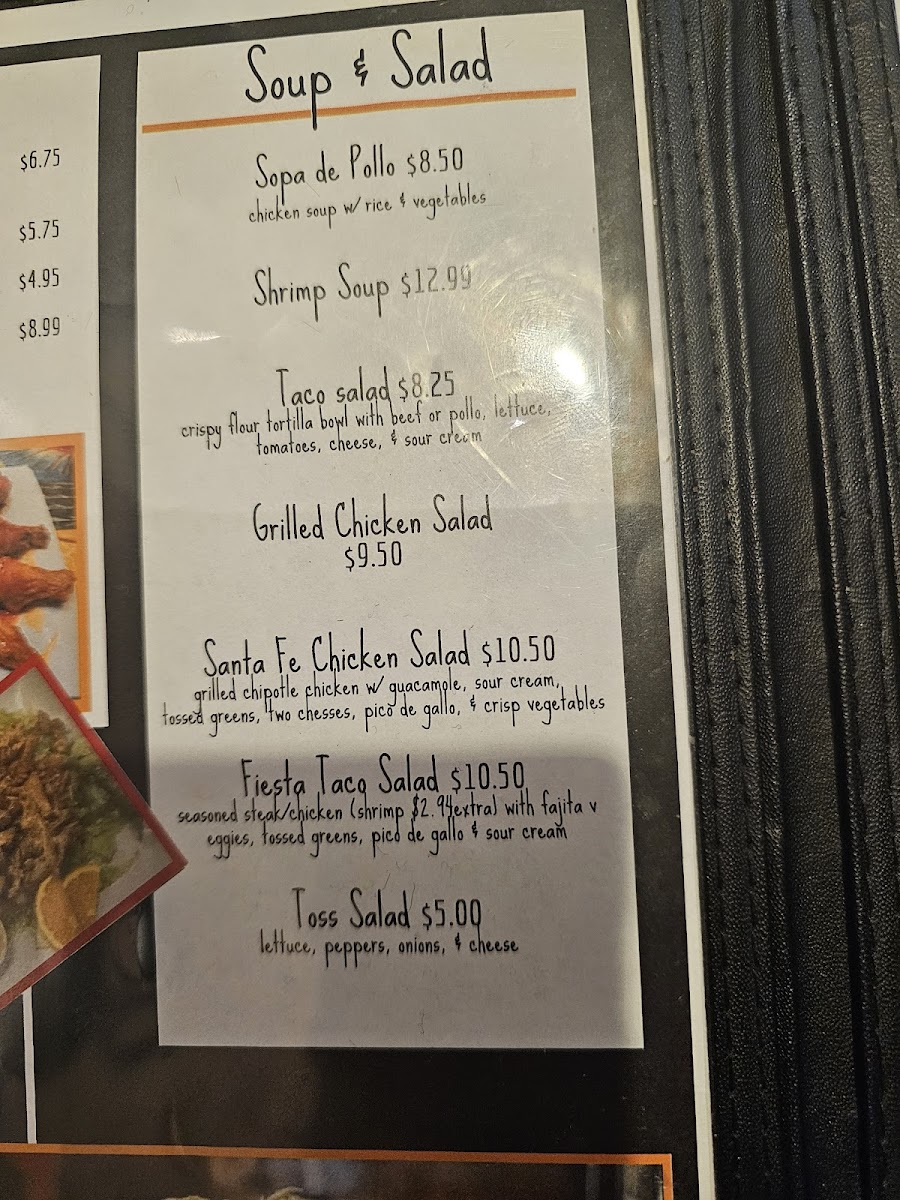 Soup & Salad
$6.75
$5.75
$4.95
$8.99
Sopa de Pollo $8.50
chicken soup w/ rice & vegetables
Shrimp Soup $12.99
Taco salad $8.25
crispy flour tortilla bowl with beef or pollo, lettuce,
tomatoes, cheese, & sour cream
Grilled Chicken Salad
$9.50
Santa Fe Chicken Salad $10.50
grilled chipotle chicken w/ guacamole, sour cream,
tossed greens, two chesses, pico de gallo, & crisp vegetables
Fiesta Taco Salad $10.50
seasoned steak/chicken (shrimp $2.94extra) with fajita v
eggies, tossed greens, pico de gallo & sour cream
Toss Salad $5.00
lettuce, peppers, onions, & cheese